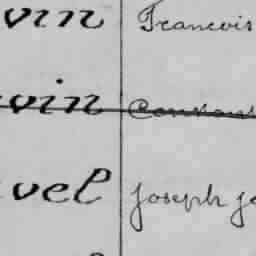 vin Francois
vin Constant
vel Joseph Je